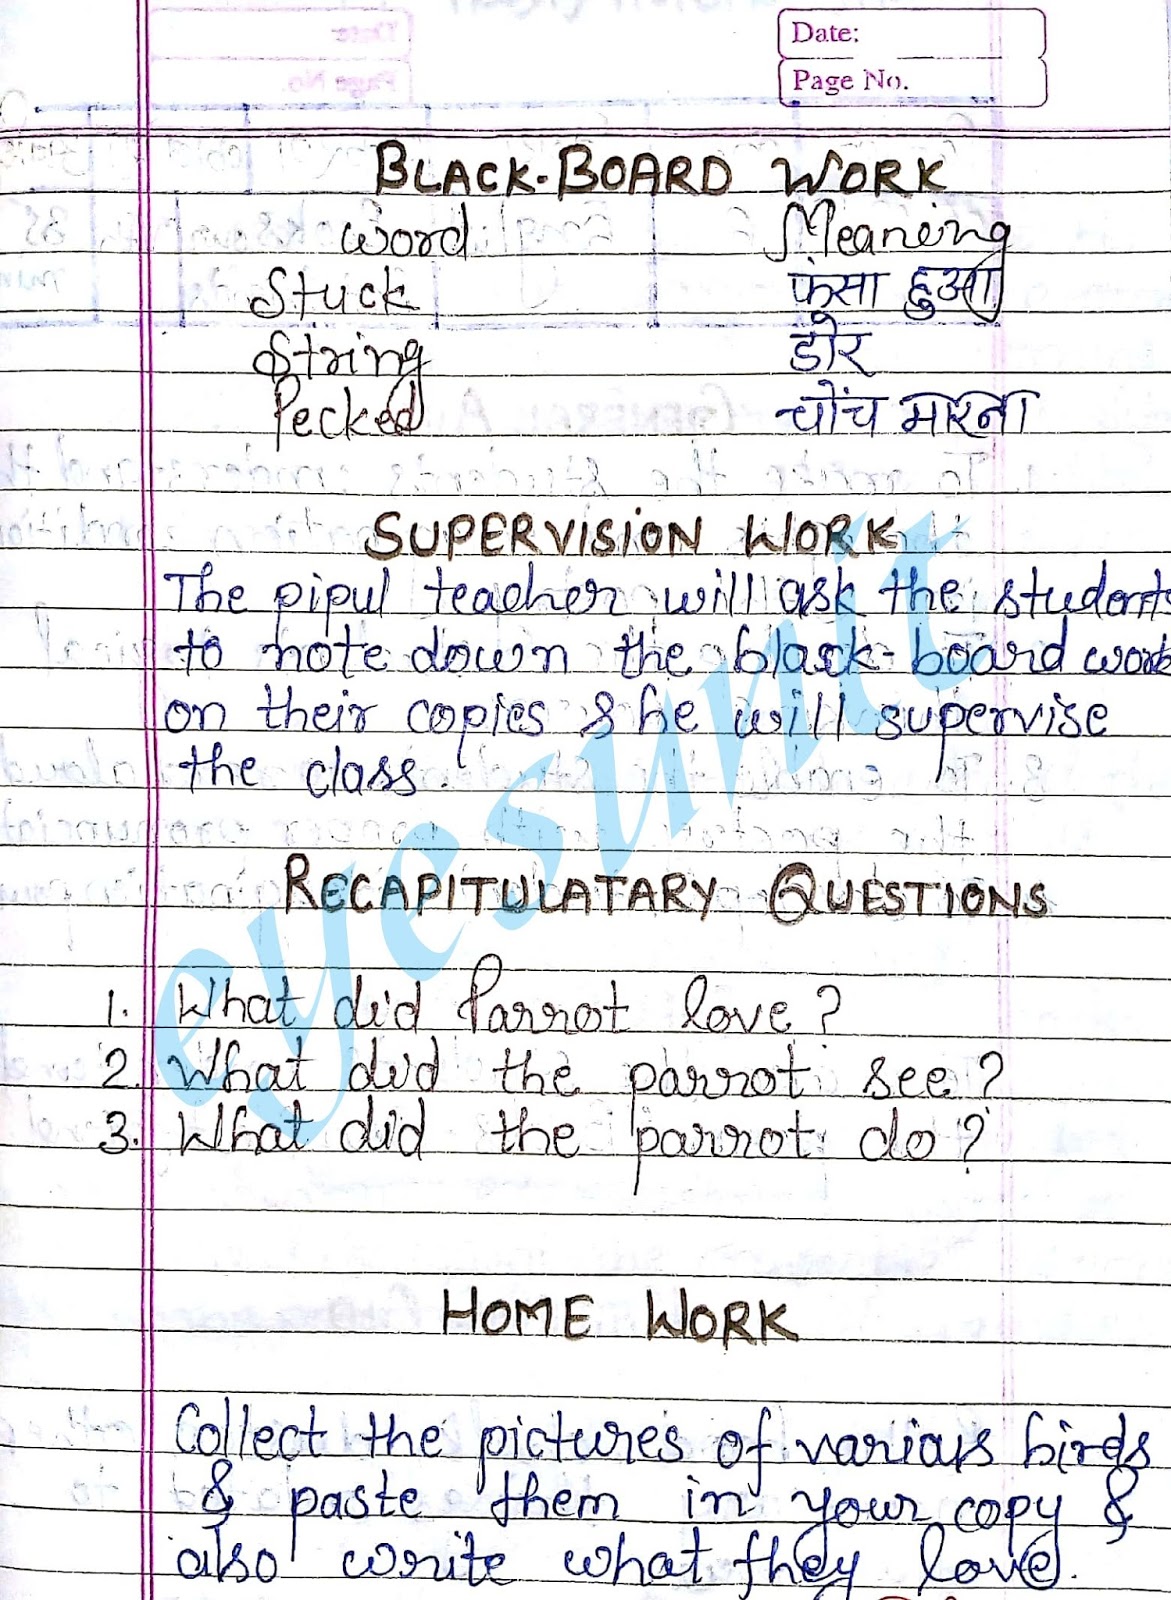 Date:
Page No.
BLACK-BOARD WORK
Word Meaning
Stuck फंसा हुआ
String डोर
Pecked चोंच मारना
SUPERVISION WORK
The pipul teacher will ask the students
to note down the black-board work
on their copies & he will supervise
the class.
RECAPITULATARY QUESTIONS
1. What did Parrot love?
2. What did the parrot see?
3. What did the parrot do?
HOME WORK
Collect the pictures of various birds
& paste them in your copy &
also write what they love.
eyesunit